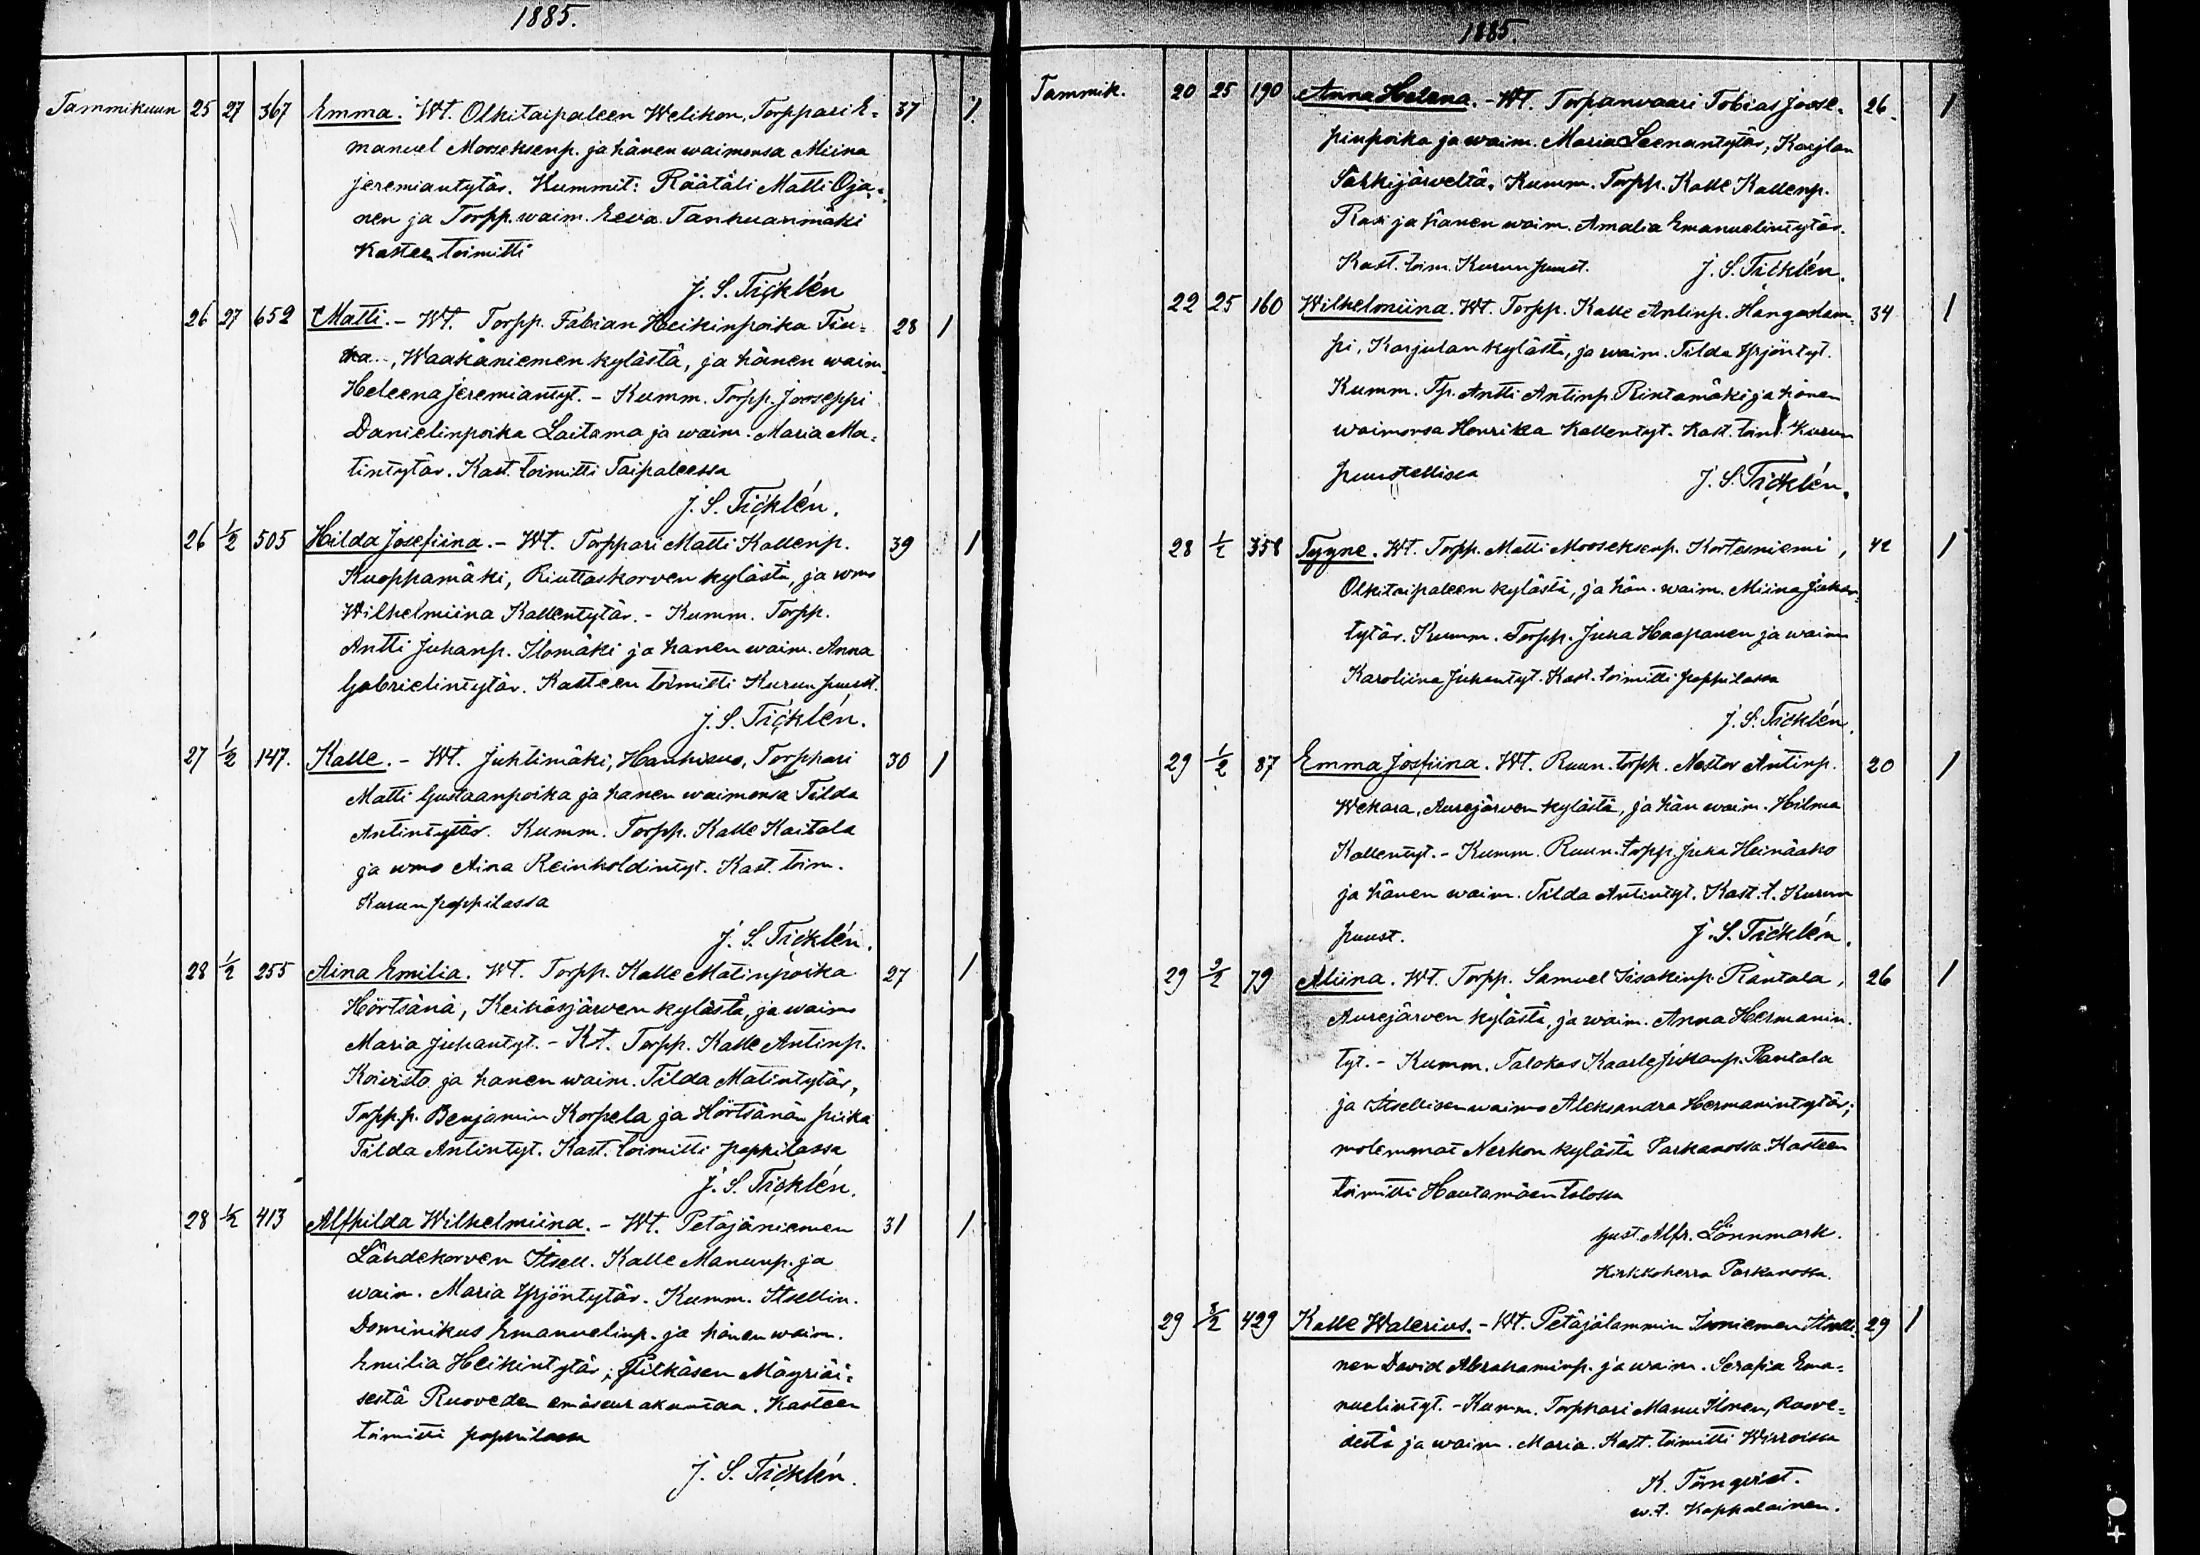 1885.
Tammikuun 25 27 367 Emma. Wt. Olkitaipaleen Welikon, Torppari E= 37 1
manuel Mooseksenp. ja hänen waimonsa Miina
Jeremiantytär. Kummit: Räätäli Matti Oja=
nen ja Torpp. waim. Eeva Tanhuanmäki
Kasteen toimitti
J. S. Ticklén
26 27 652 Matti. - Wt. Torpp. Fabian Heikinpoika Tiu= 28 1
ka, Waakaniemen kylästä, ja hänen waim.
Heleena Jeremiantyt. - Kumm. Torpp. Jooseppi
Danielinpoika Laitama ja waim. Maria Ma=
tintytär. Kast. toimitti Taipaleessa
J. S. Ticklén.
26 1/2 505 Hilda Josefiina. - Wt. Torppari Matti Kallenp. 39 1
Kuoppamäki, Riuttaskorven kylästä, ja wmo
Wilhelmiina Kallentytär. - Kumm. Torpp.
Antti Juhanp. Ilomäki ja hänen waim. Anna
Gabrielintytär. Kasteen toimitti Kurun puust.
J. S. Ticklén.
27 1/2 147. Kalle. - Wt. Juhtimäki, Torppari 30 1
Matti Gustaanpoika ja hänen waimonsa Tilda
Antintytär. Kumm. Torpp. Kalle Kaitala
ja wmo Aina Reinholdintyt. Kast. toim.
Kurun pappilassa
J. S. Ticklén.
28 1/2 255 Aina Emilia. Wt. Torpp. Kalle Matinpoika 27 1
Hörtsänä, Keihäsjärven kylästä, ja waimo
Maria Juhantyt. - Kt. Torpp. Kalle Antinp.
Koivisto ja hänen waim. Tilda Matintytär,
Torpp.p. Benjamin Korpela ja Hörtsänän piika
Tilda Antintyt. Kast. toimitti pappilassa
J. S. Ticklén.
28 1/2 413 Alfhilda Wilhelmiina. - Wt. Petäjäniemen 31 1
Lähdekorven Itsell. Kalle Manunp. ja
waim. Maria Yrjöntytär. Kumm. Itsellin.
Dominikus Emanuelinp. ja hänen waim.
Emilia Heikintytär; Pitkäsen Mäyriäi=
sestä Ruoveden emäseurakuntaa. Kasteen
toimitti pappilassa
J. S. Ticklén.
1885.
Tammik. 20 25 190 Anna Helena. - Wt. Torpanvaari Tobias Joose= 26 1
pinpoika ja waim. Maria Leenantytär, Karjlan
Särkijärveltä. Kumm. Torpp. Kalle Kallenp.
Rasi ja hänen waim. Amalia Emanuelintytär.
Kast. toim. Kurun puust. J. S. Ticklén.
22 25 160 Wilhelmiina. Wt. Torpp. Kalle Antinp. Hangaslam= 34 1
pi, Karjulan kylästä, ja waim. Tilda Yrjöntyt.
Kumm. Tp. Antti Antinp. Rintamäki ja hänen
waimonsa Henrika Kallentyt. Kast. toim. Kurun
puustellissa J. S. Ticklén.
28 1/2 358 Tyyne. Wt. Torpp. Matti Mooseksenp. Kortesniemi, 42 1
Olkitaipaleen kylästä, ja hän. waim. Miina Juhan=
tytär. Kumm. Torpp. Juha Haapanen ja waimo
Karoliina Juhantyt. Kast. toimitti pappilassa
J. S. Ticklén.
29 1/2 87 Emma Josfiina. Wt. Ruun. torpp. Nestor Antinp. 20 1
Wehara, Aurejärven kylästä, ja hän waim. Hilma
Kallentyt. - Kumm. Ruun. torpp. Juha Heinäaho
ja hänen waim. Tilda Antintyt. Kast. t. Kurun
puust. J. S. Ticklén.
29 2/2 79 Aliina. Wt. Torpp. Samuel Iisakinp. Rantala, 26 1
Aurejärven kylästä, ja waim. Anna Hermanin.
tyt. - Kumm. Talokas Kaarle Juhanp. Rantala
ja Itsellisen waimo Aleksandra Hermanintytär;
molemmat Nerkon kylästä Parkanossa. Kasteen
toimitti Hautamäen talossa
Gust. Alfr. Lönnmark.
Kirkkoherra Parkanossa.
29 8/2 429 Kalle Walerius. - Wt. Petäjälammin Itselli= 29 1
nen David Abrahaminp. ja waim. Serafia Ema=
nuelintyt. - Kumm. Torppari Manu Ilonen, Ruove=
destä ja waim. Maria. Kast. toimitti Wirroissa
K. Törnqvist.
w.t. Kappalainen.